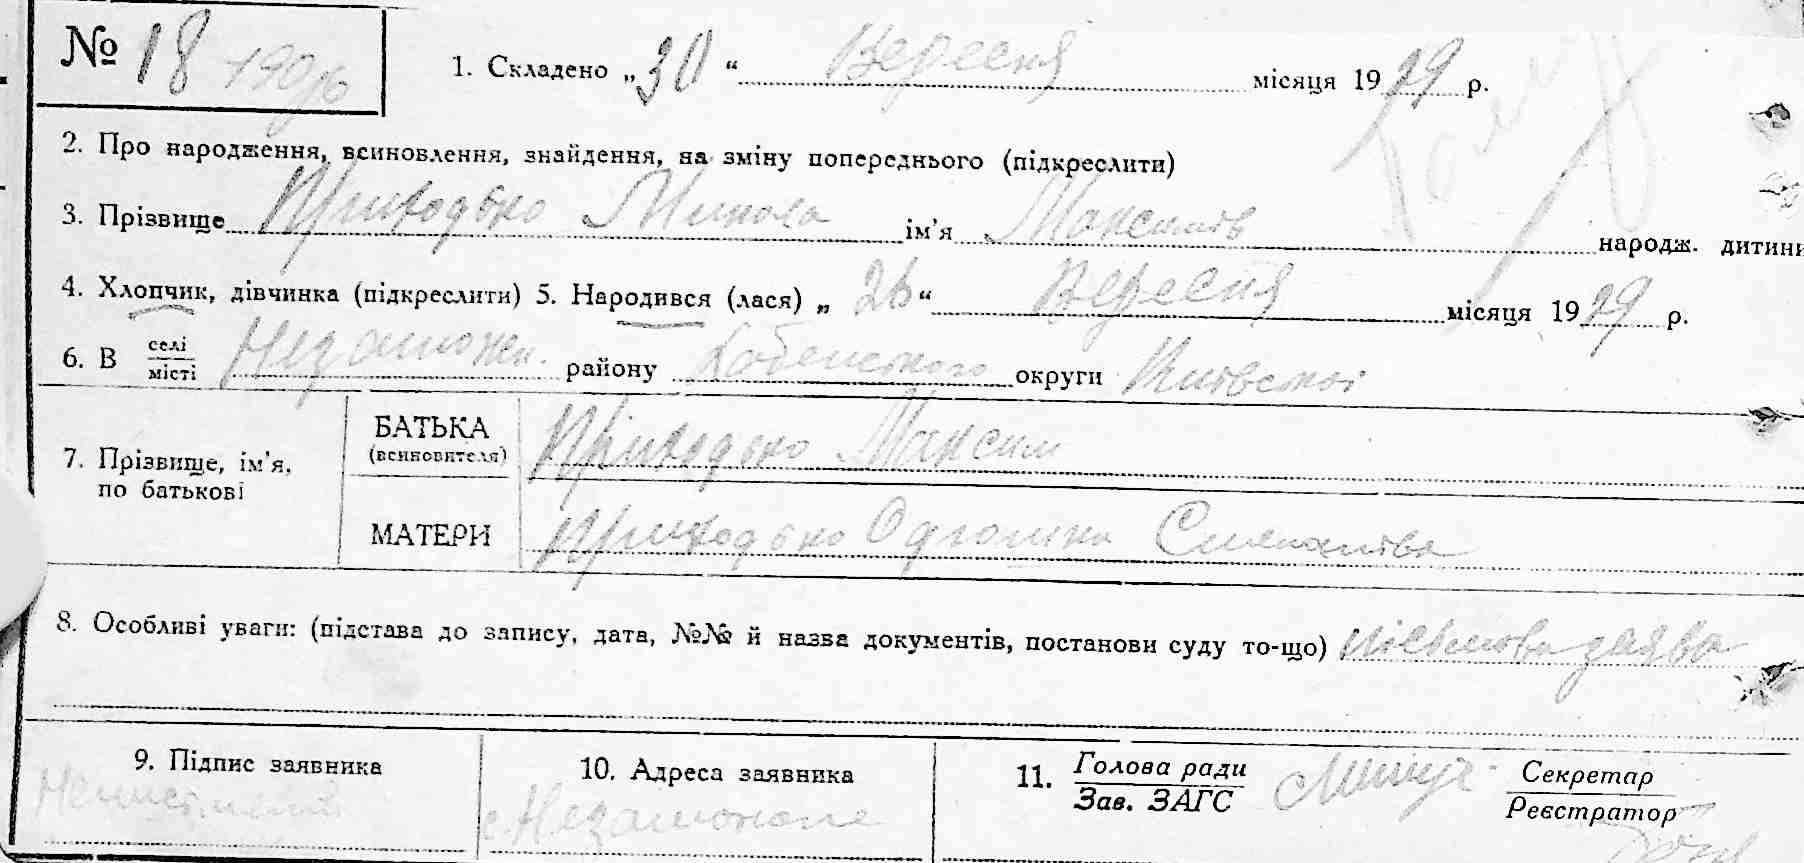 № 18
1. Складено „30“ Вересня місяця 1929 р.
2. Про народження, всиновлення, знайдення, на зміну попереднього (підкреслити)
3. Прізвище Приходько Микола ім'я Максимів народж. дитини
4. Хлопчик, дівчинка (підкреслити) 5. Народився (лася) „26“ Вересня місяця 1929 р.
6. В селі місті Незаможн. району округи Київської
7. Прізвище, ім'я, по батькові
БАТЬКА (всиновителя) Приходько Максим
МАТЕРИ Приходько
8. Особливі уваги: (підстава до запису, дата, №№ й назва документів, постанови суду то-що) Письмова заява
9. Підпис заявника
10. Адреса заявника
с. Незаможне
11. Голова ради
Зав. ЗАГС
Секретар
Реєстратор